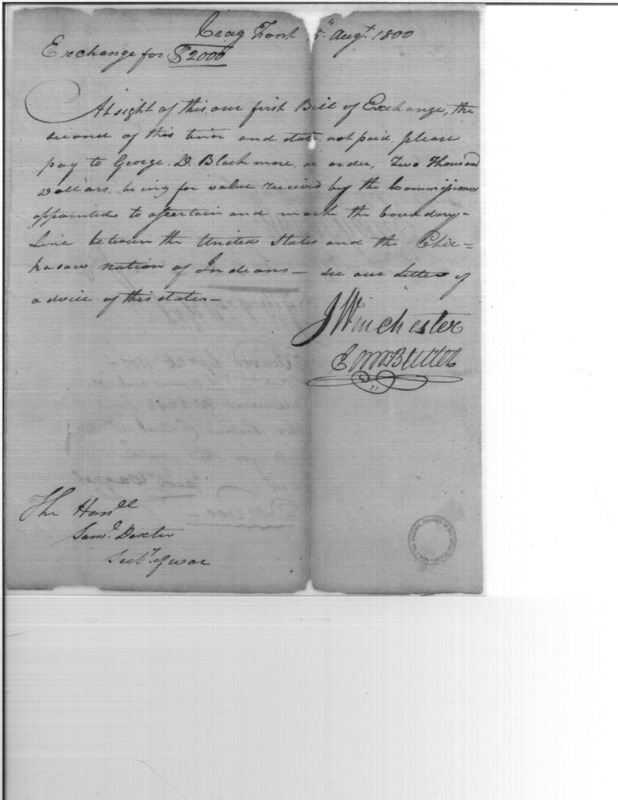 Crag Font 5th Augt. 1800
Exchange for $2000
At sight of this our first Bill of Exchange, the
second of this tenor and date not paid please
pay to George. D. Blackmore, or order, Two Thousand
Dollars. being for value received by the Commissioners
appointed to ascertain and mark the boundary-
Line between the United States and the Chic=
kasaw nation of Indians— see our Letter of
advice of this date—
J Winchester
The Honble
Saml. Dexter
Secy. of war